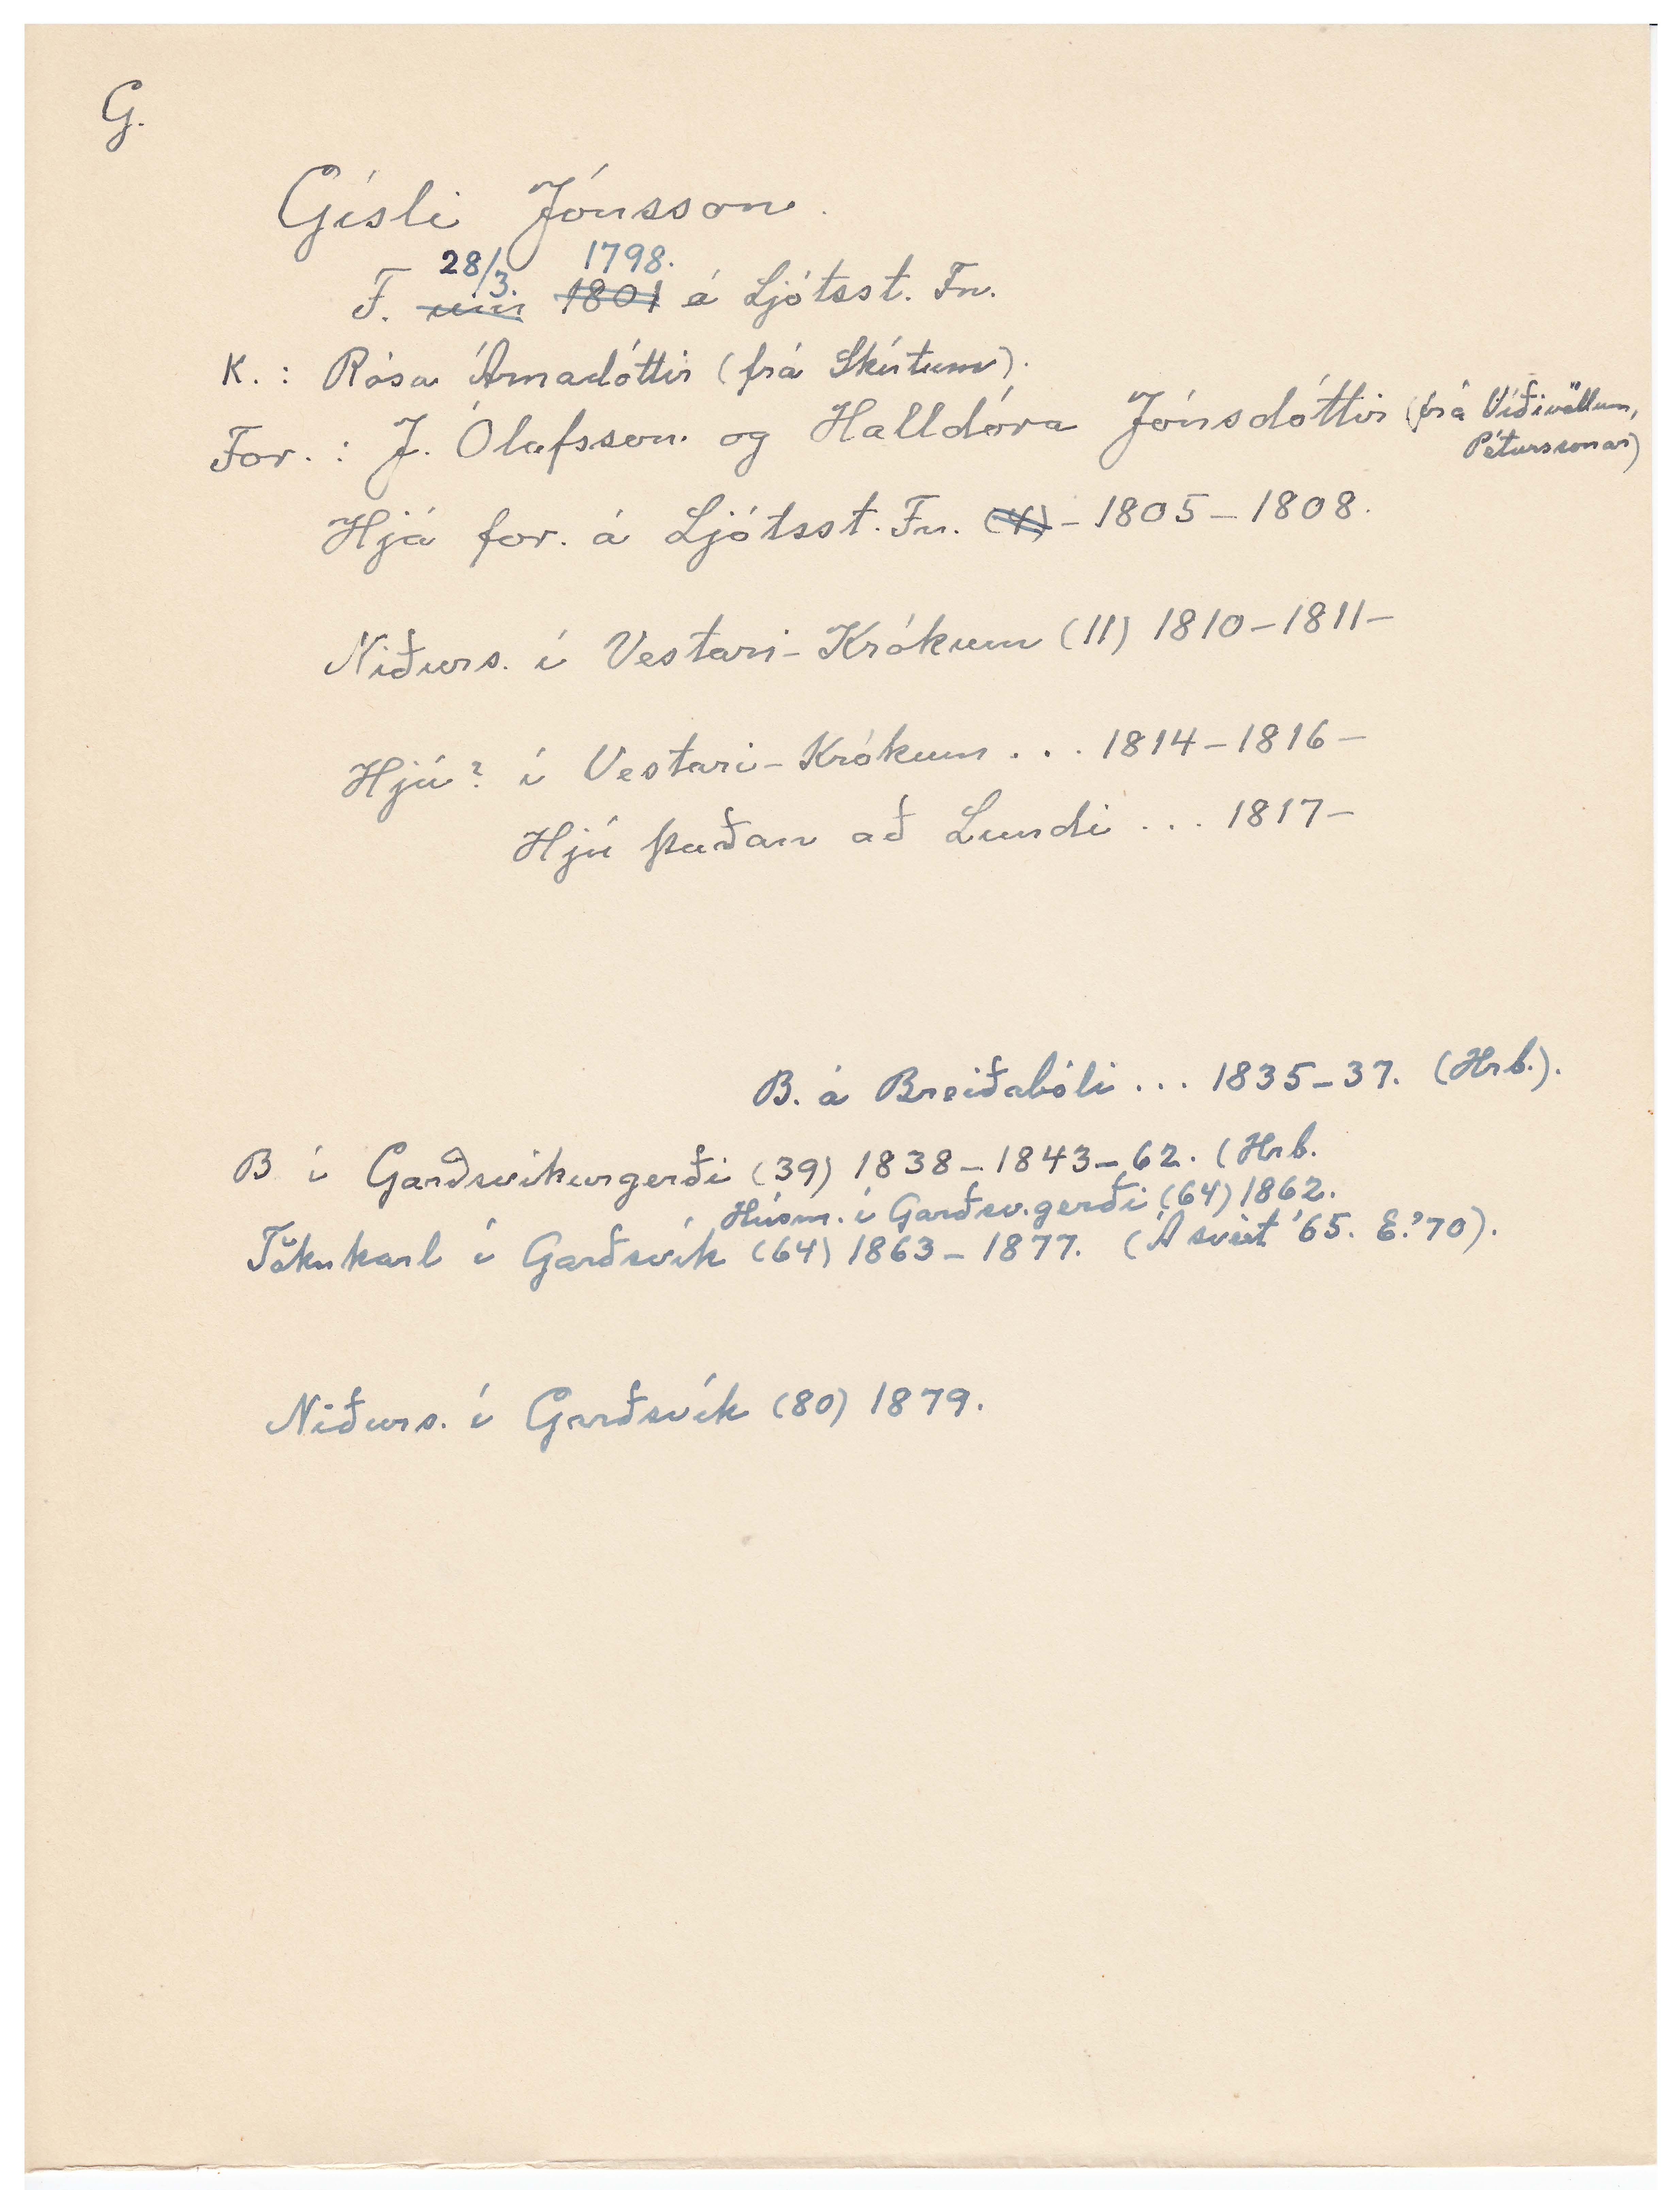 G.
Gísli Jónsson.
28/3. 1798.
F. um 1801 á Ljótsst. Fn.
K. : Rósa Árnadóttir (frá Skútum).
For. : J. Ólafsson og Halldóra Jónsdóttir (frá Víðivöllum,
Péturssonar)
Hjá for. á Ljótsst. Fn. (4) - 1805 - 1808.
Niðurs. í Vestari-Krókum (11) 1810 - 1811 -
Hjú? í Vestari-Krókum . . . 1814 - 1816 -
Hjú þaðan að Lundi . . . 1817 -
B. á Breiðabóli . . . 1835 - 37. (Hrb.).
B í Garðsvíkurgerði (39) 1838 - 1843 - 62. (Hrb.
Húsm. í Garðsv.gerði (64) 1862.
Tökukarl í Garðsvík (64) 1863 - 1877. (Á sveit '65. E.'70).
Niðurs. í Garðsvík (80) 1879.